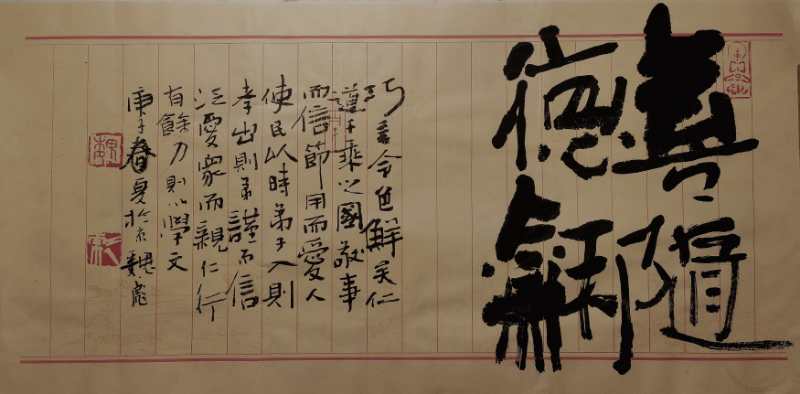 善隨
德
巧言令色鮮矣仁
道千乘之國敬事
而信節用而愛人
使民以時弟子入則
孝出則弟謹而信
泛愛眾而親仁行
有餘力則以學文
庚子春夏於京魏彪